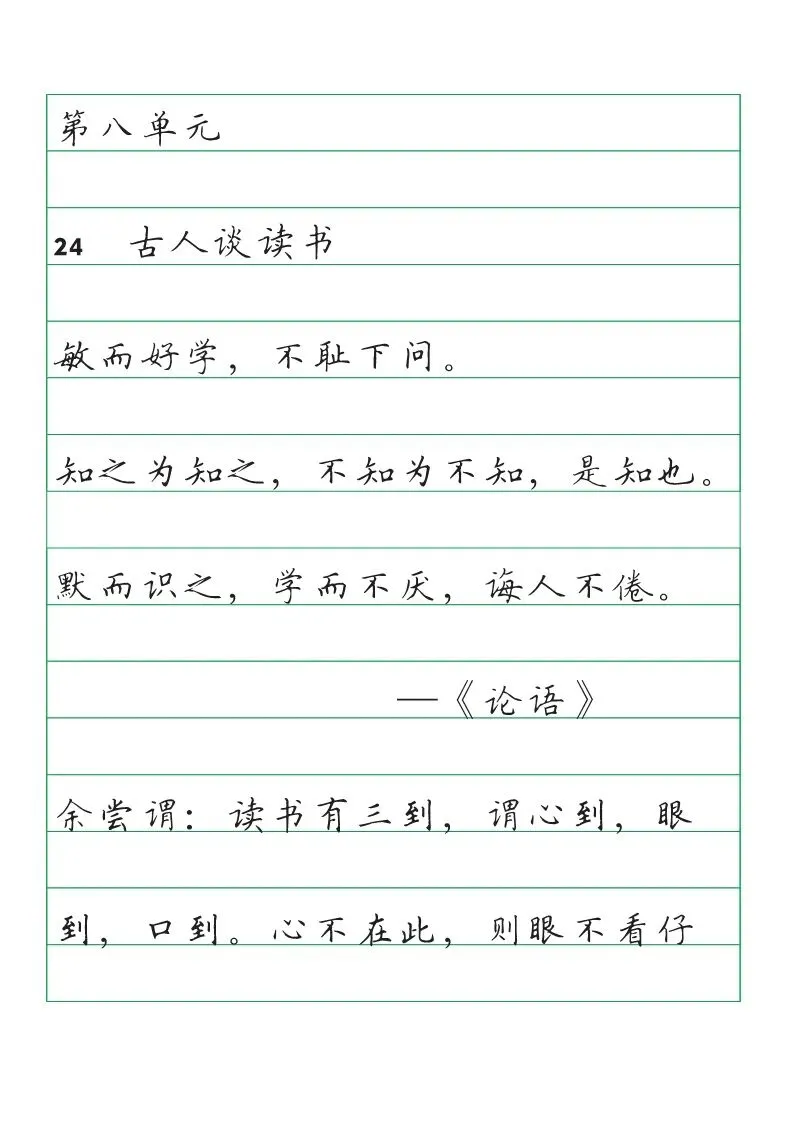 第八单元
24 古人谈读书
敏而好学，不耻下问。
知之为知之，不知为不知，是知也。
默而识之，学而不厌，诲人不倦。
—《论语》
余尝谓：读书有三到，谓心到，眼
到，口到。心不在此，则眼不看仔